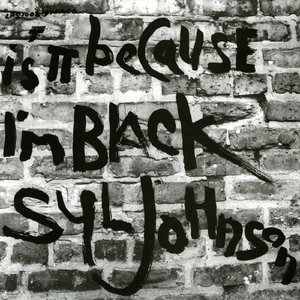 is iT beCAUSE
i'm BlACK
SYL JoHnson